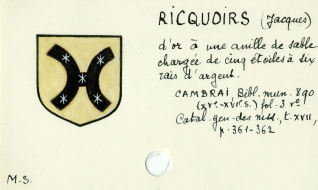 RICQUOIRS (Jacques)
d'or à une anille de sable
chargée de cinq étoiles à six
rais d'argent.
CAMBRAI, Bibl. mun. 890
(XVe-XVIIe s.) fol. 3 vº
Catal. gén. des mss., t. XVII,
p. 361-362
M.S.